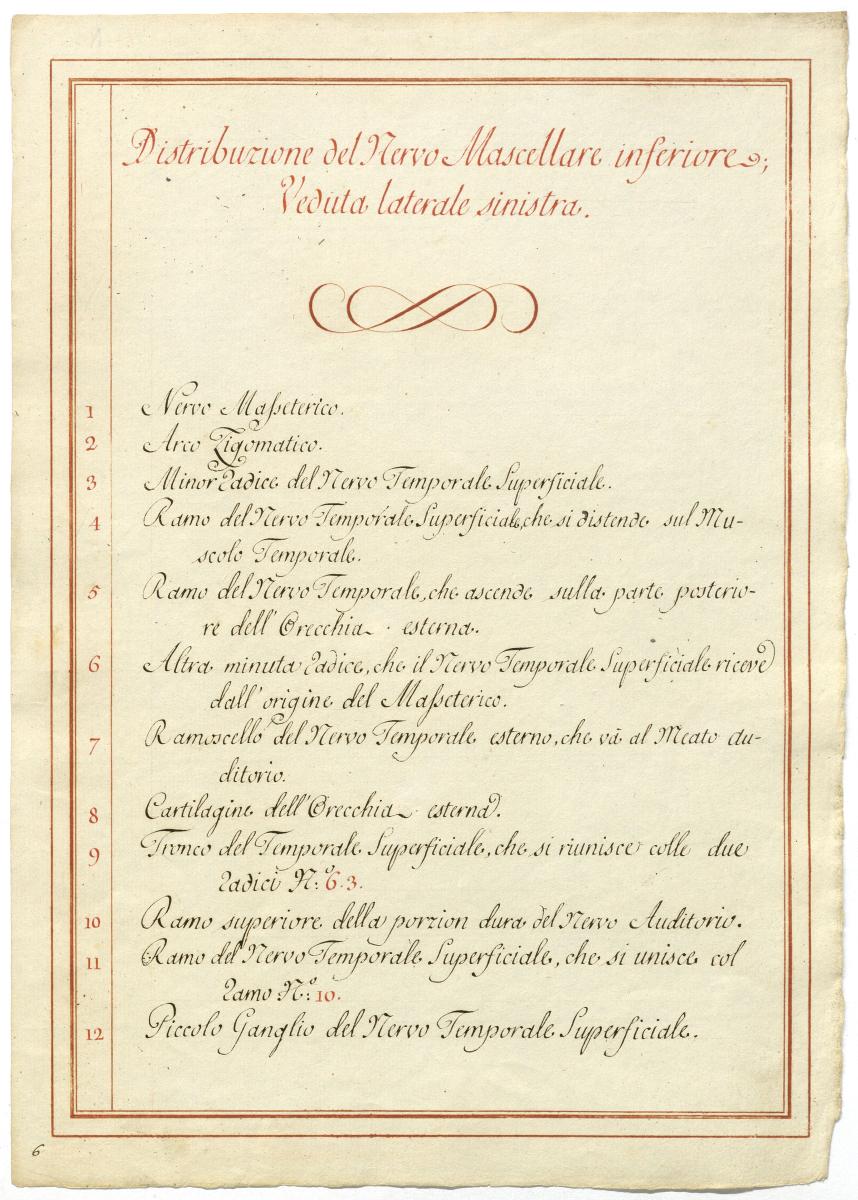 Distribuzione del Nervo Mascellare inferiore;
Veduta laterale sinistra.
1 Nervo Masseterico.
2 Arco Zigomatico.
3 Minor Radice del Nervo Temporale Superficiale.
4 Ramo del Nervo Temporale Superficiale, che si distende sul Mu-
scolo Temporale.
5 Ramo del Nervo Temporale, che ascende sulla parte posterio-
re dell'Orecchia esterna.
6 Altra minuta Radice, che il Nervo Temporale Superficiale riceve
dall'origine del Masseterico.
7 Ramoscello del Nervo Temporale esterno, che và al Meato au-
ditorio.
8 Cartilagine dell'Orecchia esterna.
9 Tronco del Temporale Superficiale, che si riunisce colle due
Radici N.º 6.3.
10 Ramo superiore della porzion dura del Nervo Auditorio.
11 Ramo del Nervo Temporale Superficiale, che si unisce col
Ramo N.º 10.
12 Piccolo Ganglio del Nervo Temporale Superficiale.
6